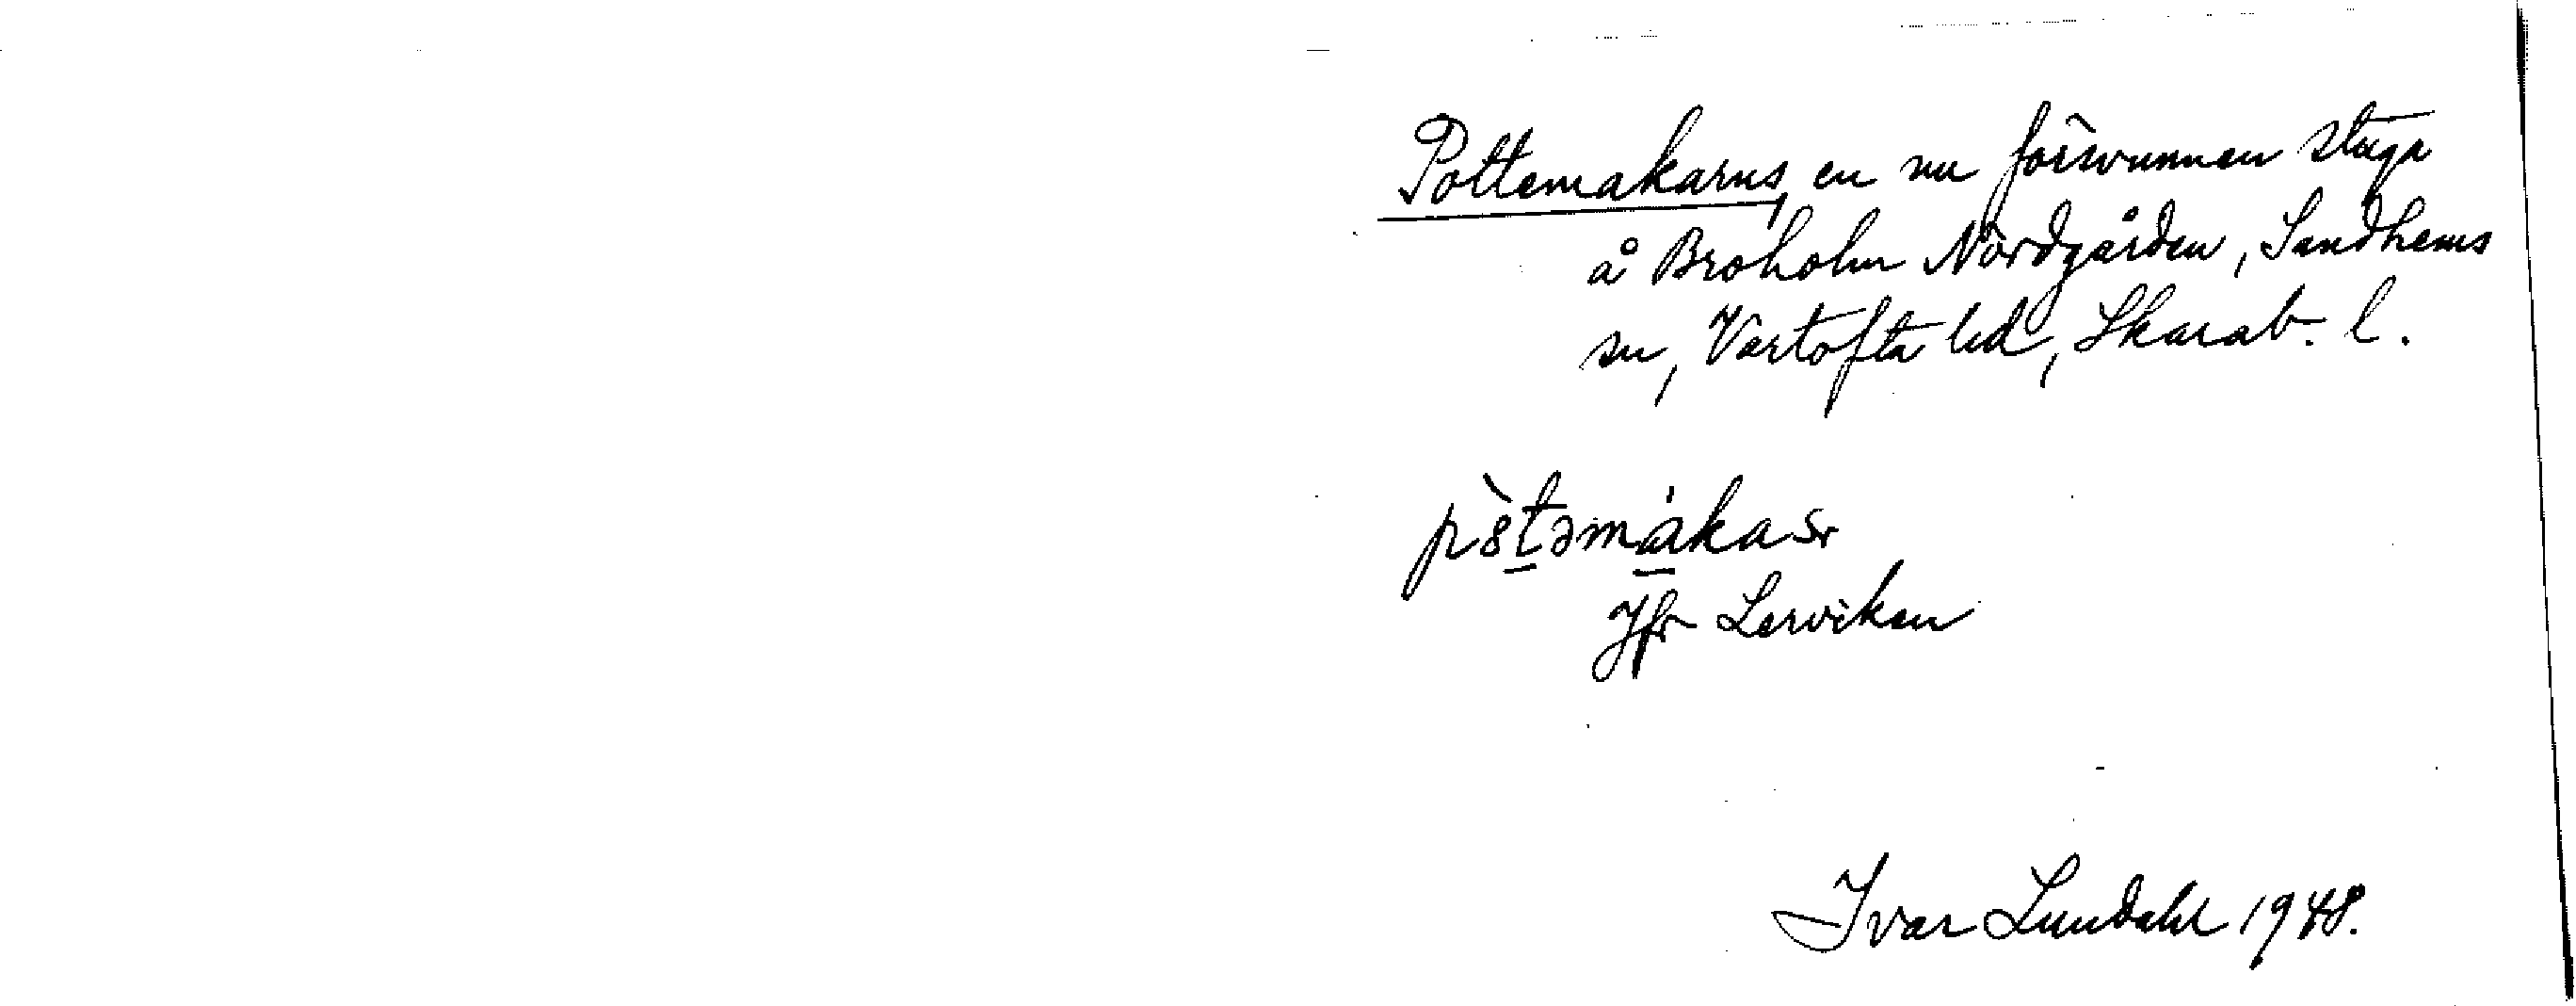 Pottemakarns, en nu försvunnen stuga
å Broholm Nordgården, Sandhems
sn, Vartofta hd, Skarab. l.
Jfr Lerviken
Ivar Lundahl 1948.